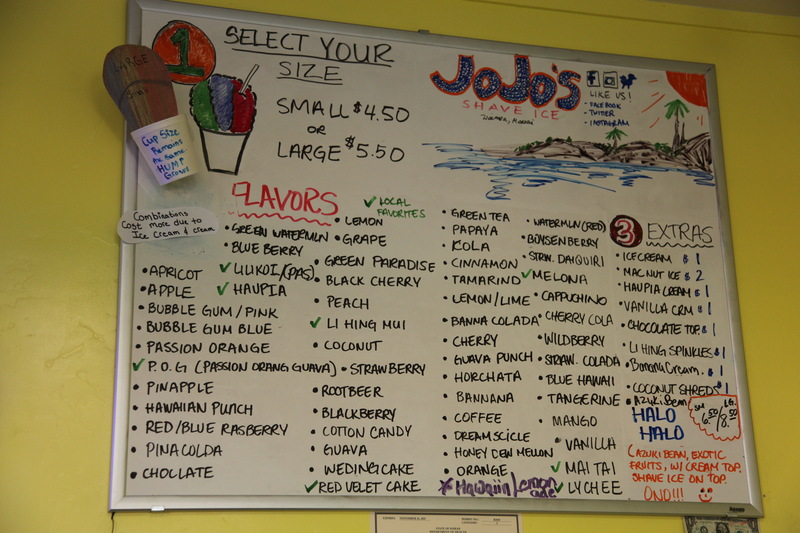 1
SELECT YOUR
SIZE
LARGE
Small
Cup Size
Remains
the Same
HUMP
Grows
SMALL $4.50
OR
LARGE $5.50
JOJO'S
SHAVE ICE
LIKE US!
- FACEBOOK
- TWITTER
- INSTAGRAM
Combinations
Cost more due to
Ice Cream & cream
FLAVORS
✓ LOCAL
FAVORITES
• GREEN WATERMLN
• BLUE BERRY
✓ LILIKOI/(PAS)
✓ HAUPIA
• APRICOT
• APPLE
• BUBBLE GUM/PINK
• BUBBLE GUM BLUE
• PASSION ORANGE
✓ P.O.G (PASSION ORANG GUAVA)
• PINAPPLE
• HAWAIIAN PUNCH
• RED/BLUE RASBERRY
• PINACOLDA
• CHOLLATE
• LEMON
• GRAPE
• GREEN PARADISE
• BLACK CHERRY
• PEACH
✓ LI HING MUI
• COCONUT
• STRAWBERRY
• ROOTBEER
• BLACKBERRY
• COTTON CANDY
• GUAVA
• WEDING CAKE
✓ RED VELET CAKE
• GREEN TEA
• PAPAYA
• KOLA
• CINNAMON
• TAMARIND
• LEMON/LIME
• BANNA COLADA
• CHERRY
• GUAVA PUNCH
• HORCHATA
• BANNANA
• COFFEE
• DREAMSCICLE
• HONEY DEW MELLON
• ORANGE
Hawaiin Lemon
ade
• WATERMLN (RED)
• BOYSENBERRY
• STRW. DAIQUIRI
✓ MELONA
• CAPPUCHINO
• CHERRY COLA
• WILDBERRY
• STRAW. COLADA
• BLUE HAWAII
• TANGERINE
• MANGO
• VANILLA
✓ MAI TAI
✓ LYCHEE
3 EXTRAS
• ICE CREAM $1
• MAC NUT ICE $2
• HAUPIA CREAM $1
• VANILLA CRM $1
• CHOCOLATE TOP. $1
• LI HING SPINKLES $1
• Banana Cream. $1
• COCONUT SHREDS $1
• Azuki Bean
HALO
HALO
SM LG.
6.50/8.50
(AZUKI BEAN, EXOTIC
FRUITS, W/ CREAM TOP.
SHAVE ICE ON TOP.
ONO!!!
STATE OF HAWAII
DEPARTMENT OF HEALTH